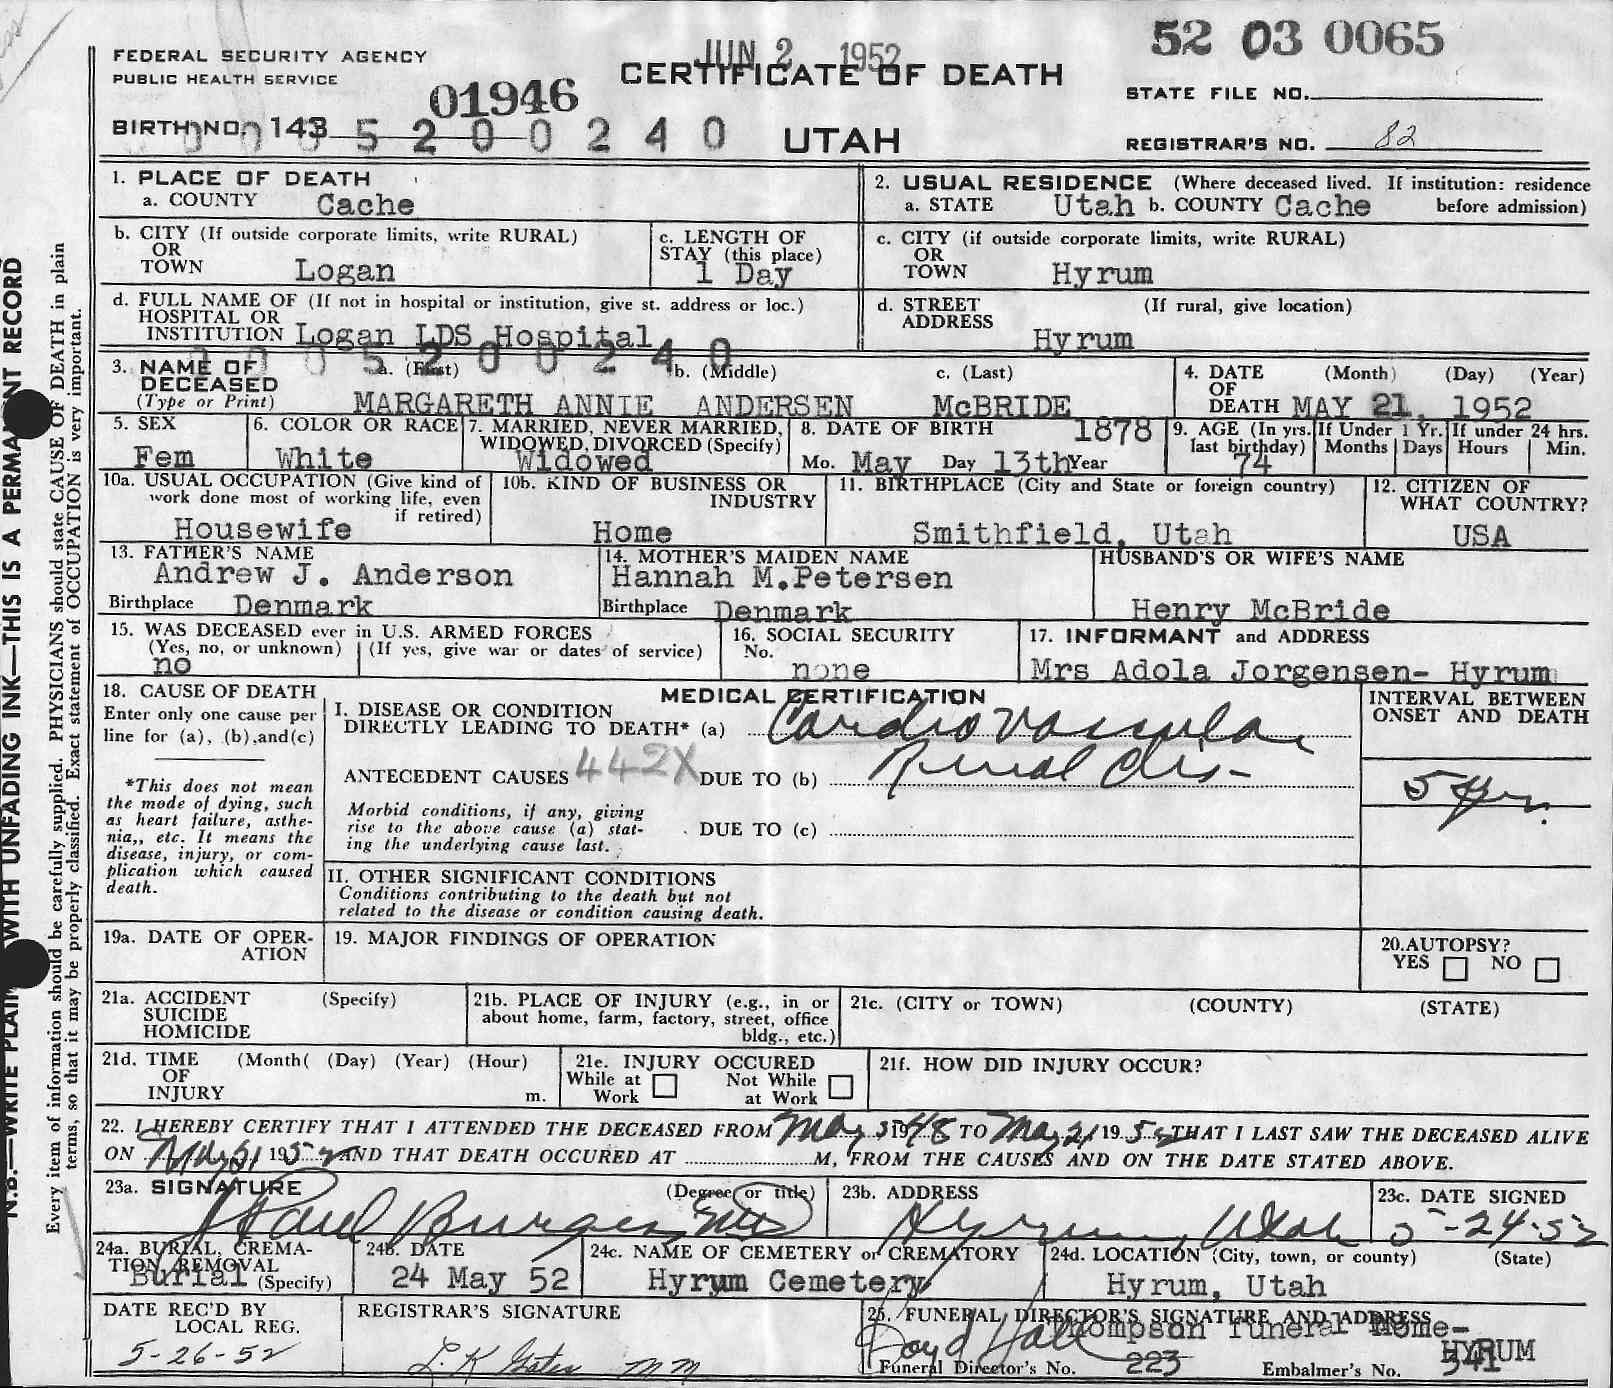 52 03 0065
JUN 2 1952
FEDERAL SECURITY AGENCY
PUBLIC HEALTH SERVICE
CERTIFICATE OF DEATH
STATE FILE NO.
01946
BIRTH NO. 143
0005200240
UTAH
REGISTRAR'S NO. 82
1. PLACE OF DEATH
a. COUNTY Cache
2. USUAL RESIDENCE (Where deceased lived. If institution: residence
a. STATE Utah b. COUNTY Cache before admission)
b. CITY (If outside corporate limits, write RURAL)
OR
TOWN Logan
c. LENGTH OF
STAY (this place)
1 Day
c. CITY (if outside corporate limits, write RURAL)
OR
TOWN Hyrum
d. FULL NAME OF (If not in hospital or institution, give st. address or loc.)
HOSPITAL OR
INSTITUTION Logan LDS Hospital
d. STREET (If rural, give location)
ADDRESS
Hyrum
0005200240
3. NAME OF a. (First) b. (Middle) c. (Last)
DECEASED
(Type or Print) MARGARETH ANNIE ANDERSEN McBRIDE
4. DATE (Month) (Day) (Year)
OF
DEATH MAY 21, 1952
5. SEX
Fem
6. COLOR OR RACE
White
7. MARRIED, NEVER MARRIED,
WIDOWED, DIVORCED (Specify)
Widowed
8. DATE OF BIRTH 1878
Mo. May Day 13th Year
9. AGE (In yrs.
last birthday)
74
If Under 1 Yr.
Months Days
If under 24 hrs.
Hours Min.
10a. USUAL OCCUPATION (Give kind of
work done most of working life, even
if retired)
Housewife
10b. KIND OF BUSINESS OR
INDUSTRY
Home
11. BIRTHPLACE (City and State or foreign country)
Smithfield, Utah
12. CITIZEN OF
WHAT COUNTRY?
USA
13. FATHER'S NAME
Andrew J. Anderson
Birthplace Denmark
14. MOTHER'S MAIDEN NAME
Hannah M.Petersen
Birthplace Denmark
HUSBAND'S OR WIFE'S NAME
Henry McBride
15. WAS DECEASED ever in U.S. ARMED FORCES
(Yes, no, or unknown) (If yes, give war or dates of service)
no
16. SOCIAL SECURITY
No.
none
17. INFORMANT and ADDRESS
Mrs Adola Jorgensen- Hyrum
18. CAUSE OF DEATH
Enter only one cause per
line for (a), (b),and(c)
*This does not mean
the mode of dying, such
as heart failure, asthe-
nia,, etc. It means the
disease, injury, or com-
plication which caused
death.
MEDICAL CERTIFICATION
I. DISEASE OR CONDITION
DIRECTLY LEADING TO DEATH* (a) Cardio Vascular
ANTECEDENT CAUSES 442X DUE TO (b) Renal Dis-
Morbid conditions, if any, giving
rise to the above cause (a) stat-
ing the underlying cause last.
DUE TO (c)
INTERVAL BETWEEN
ONSET AND DEATH
5 yrs.
II. OTHER SIGNIFICANT CONDITIONS
Conditions contributing to the death but not
related to the disease or condition causing death.
19a. DATE OF OPER-
ATION
19. MAJOR FINDINGS OF OPERATION
20.AUTOPSY?
YES NO
21a. ACCIDENT (Specify)
SUICIDE
HOMICIDE
21b. PLACE OF INJURY (e.g., in or
about home, farm, factory, street, office
bldg., etc.)
21c. (CITY or TOWN) (COUNTY) (STATE)
21d. TIME (Month( (Day) (Year) (Hour)
OF
INJURY m.
21e. INJURY OCCURED
While at Not While
Work at Work
21f. HOW DID INJURY OCCUR?
22. I HEREBY CERTIFY THAT I ATTENDED THE DECEASED FROM May 3 1948 TO May 21 1952 THAT I LAST SAW THE DECEASED ALIVE
ON May 21 1952 AND THAT DEATH OCCURED AT M, FROM THE CAUSES AND ON THE DATE STATED ABOVE.
23a. SIGNATURE (Degree or title)
Paul Burgess MD
23b. ADDRESS
Hyrum, Utah
23c. DATE SIGNED
5-24-52
24a. BURIAL, CREMA-
TION, REMOVAL
Burial (Specify)
24B. DATE
24 May 52
24c. NAME OF CEMETERY or CREMATORY
Hyrum Cemetery
24d. LOCATION (City, town, or county) (State)
Hyrum, Utah
DATE REC'D BY
LOCAL REG.
5-26-52
REGISTRAR'S SIGNATURE
25. FUNERAL DIRECTOR'S SIGNATURE AND ADDRESS
Thompson Funeral Home-
HYRUM
Funeral Director's No. 223 Embalmer's No. 341
N.B.—WRITE PLAINLY WITH UNFADING INK—THIS IS A PERMANENT RECORD
Every item of information should be carefully supplied. PHYSICIANS should state CAUSE OF DEATH in plain
terms, so that it may be properly classified. Exact statement of OCCUPATION is very important.